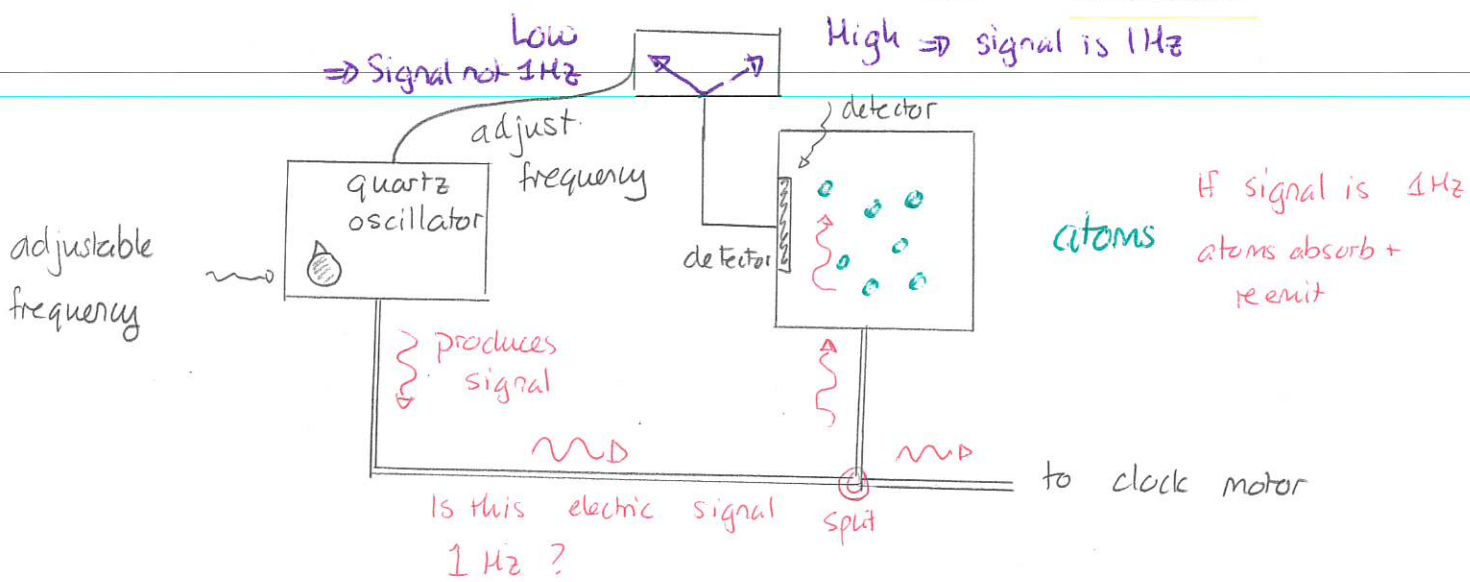 Low
⇒ Signal not 1Hz
High ⇒ signal is 1Hz
adjust
frequency
detector
quartz
oscillator
adjustable
frequency
detector
atoms
If signal is 1Hz
atoms absorb +
reemit
produces
signal
Is this electric signal
1 Hz ?
split
to clock motor